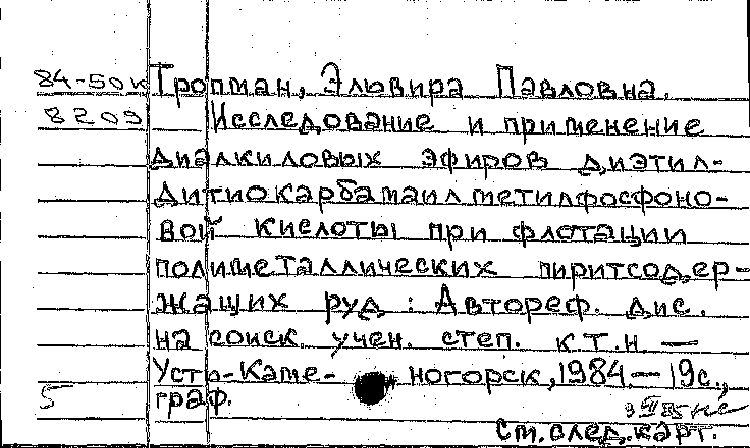 84-50к Тропман, Эльвира Павловна.
8209 Исследование и применение
диалкиловых эфиров диэтил-
дитиокарбамаилметилфосфоно-
вой кислоты при флотации
полиметаллических пиритсодер-
жащих руд : Автореф. дис.
на соиск. учен. степ. к.т.н. —
Усть-Каме- ногорск, 1984. — 19с.,
5 граф.
См. след. карт.